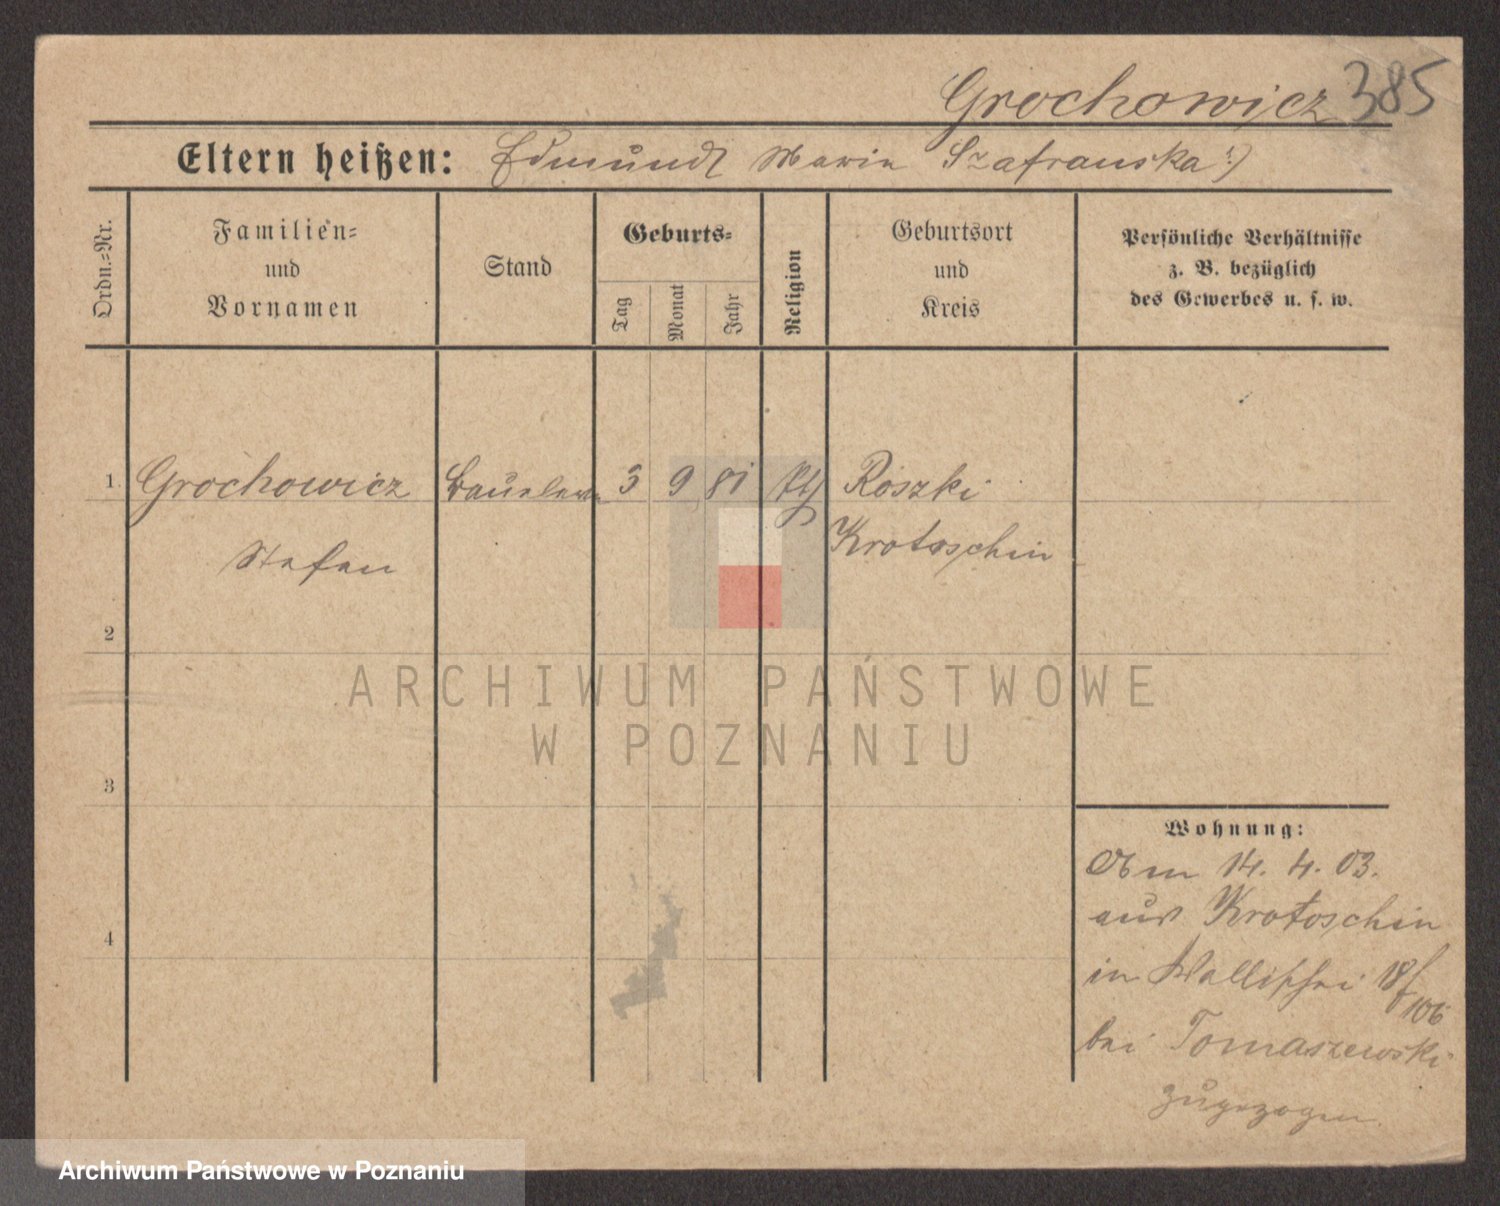 Grochowicz 385
Eltern heißen: Edmund Maria Szafranska :)
Ordn.=Nr.
Familien=
und
Vornamen
Stand
Geburts=
Tag
Monat
Jahr
Religion
Geburtsort
und
Kreis
Persönliche Verhältnisse
z. B. bezüglich
des Gewerbes u. s. w.
1 Grochowicz 3 9 81 Roszki
Stefan Krotoschin
2
ARCHIWUM PAŃSTWOWE
W POZNANIU
3
Wohnung:
14. 4. 03.
aus Krotoschin
4
in Wallischei 18/106
bei Tomaszewski
zugezogen
Archiwum Państwowe w Poznaniu